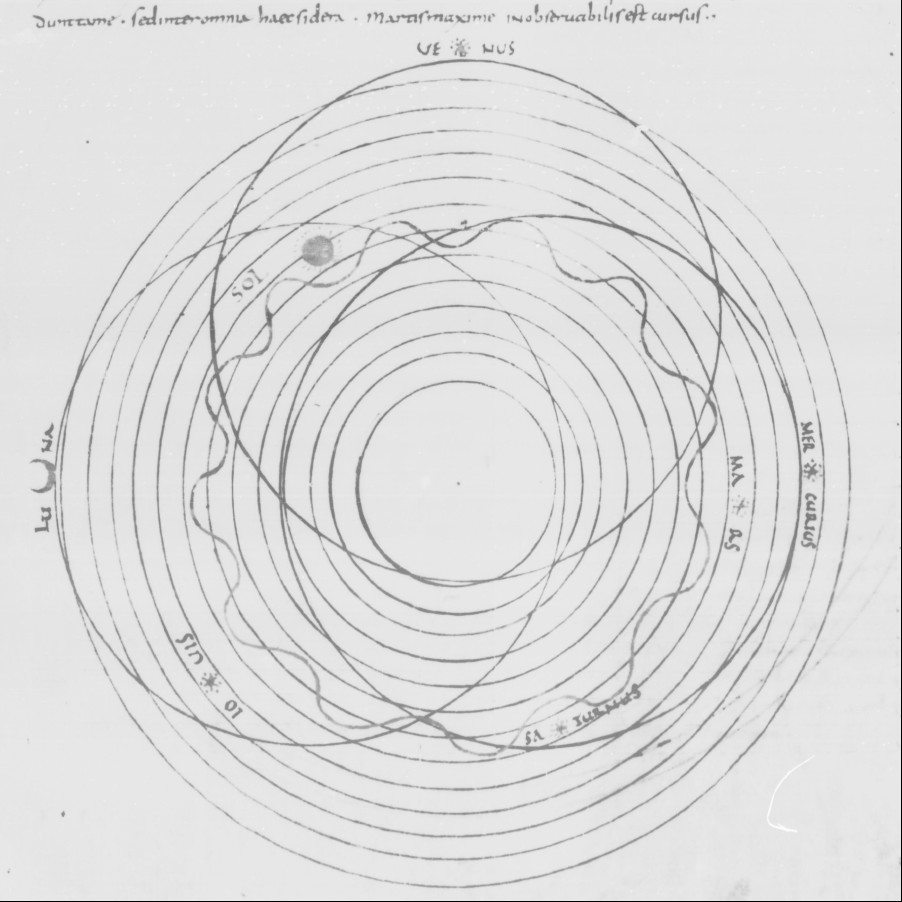 Dunt tane · sed inter omnia haec sidera · Martis maxime inobservabilis est cursus··
VE NUS
SOL
LU NA
MER CURIUS
MA RS
IO VIS
SA TURNUS